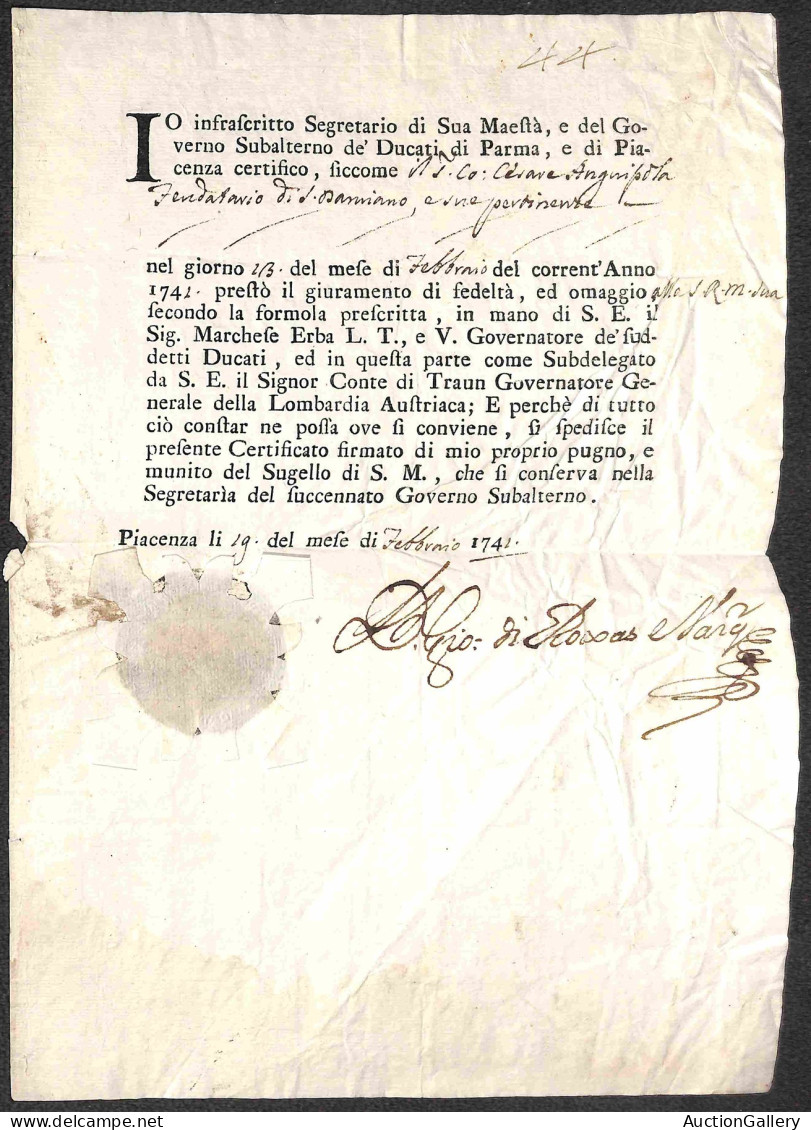 44.
IO infraſcritto Segretario di Sua Maeſtà, e del Go-
verno Subalterno de' Ducati di Parma, e di Pia-
cenza certifico, ſiccome il S. Co: Cesare Anguiſsola
Feudatario di S. Damiano, e sue pertinenze
nel giorno 18. del meſe di Febbraio del corrent'Anno
1741. preſtò il giuramento di fedeltà, ed omaggio alla S. R. M. Sua
ſecondo la formola preſcritta, in mano di S. E. il
Sig. Marcheſe Erba L. T., e V. Governatore de' ſud-
detti Ducati, ed in queſta parte come Subdelegato
da S. E. il Signor Conte di Traun Governatore Ge-
nerale della Lombardia Auſtriaca; E perchè di tutto
ciò conſtar ne poſſa ove ſi conviene, ſi ſpediſce il
preſente Certificato firmato di mio proprio pugno, e
munito del Sugello di S. M., che ſi conſerva nella
Segretarìa del ſuccennato Governo Subalterno.
Piacenza li 19. del meſe di Febbraio 1741.
Gio: di
AuctionGallery